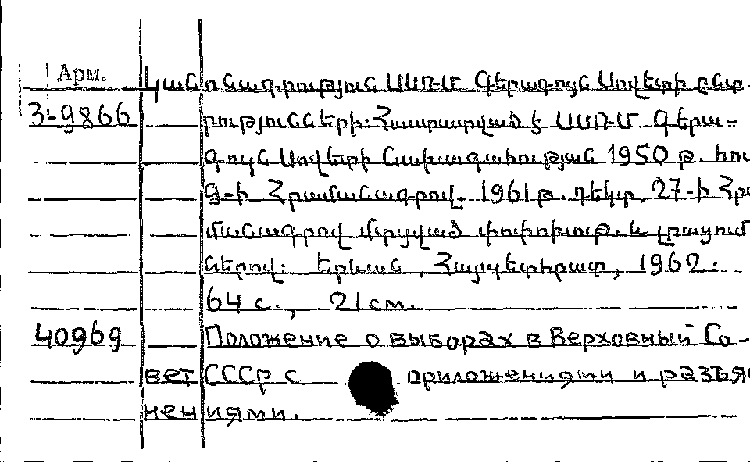 Арм. Կանոնադրություն ՍՍՌՄ Գերագույն Սովետի ընտ-
3-9866 րությունների: Հաստատված է ՍՍՌՄ Գերա-
գույն Սովետի Նախագահության 1950 թ. հու
9-ի Հրամանագրով. 1961 թ. դեկտ. 27-ի Հրա
մանագրով մտցված փոփոխութ. և լրացում
ներով: Երևան, Հայպետհրատ, 1962.
64 с., 21 см.
40969 Положение о выборах в Верховный Со-
вет СССР с приложениями и разъяс
нениями.